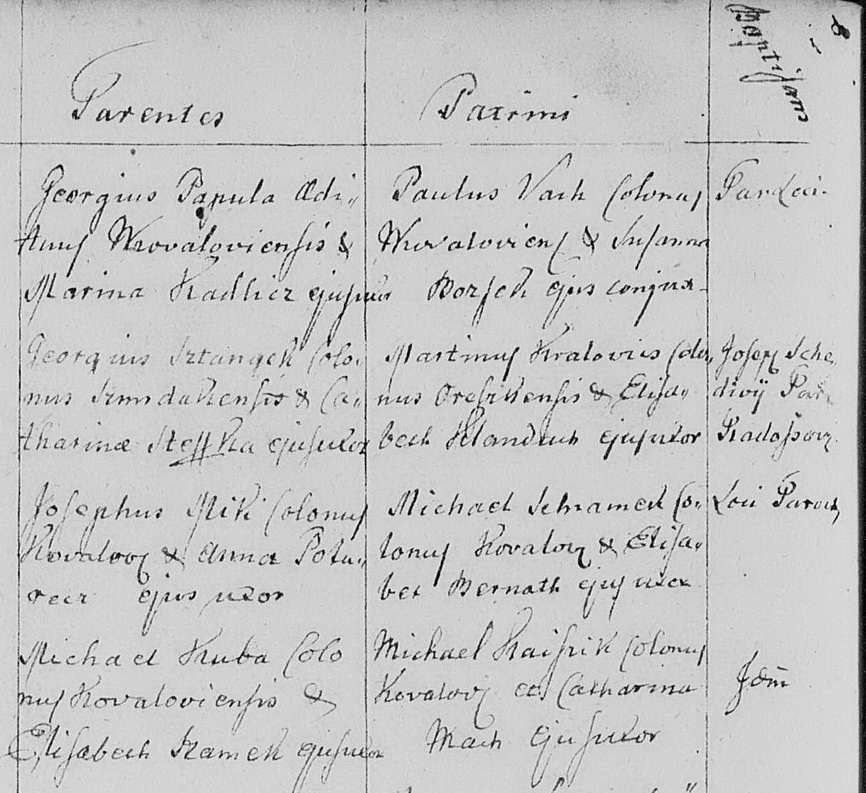 Parentes
Patrini
Baptisans
8
Georgius Papula Ædi„
tuus Kovaloviensis &
Marina Hadlicz ejusuxor
Paulus Vach Colonus
Kovaloviens & Susanna
Borsek ejus conjux
Par Loci
Georgius Sztangek Colo„
nus & Ca„
tharinæ Steffka ejusuxor
Martinus Kralovics Colo„
nus Oreskensis & Elisa„
beth ejusuxor
Josep Sche„
divÿ Par„
Radossovz
Josephus Mik Colonus
Kovalovz & Anna Potu„
recz ejus uxor
Michael Schramek Co„
lonus Kovalovz & Elisa„
bet Bernath ejusuxor
Loci Paroch
Michael Kuba Colo
nus Kovaloviensis &
Elisabeth Sramek ejusuxor
Michael Colonus
Kovalovz et Catharina
Mach ejusuxor
Idem